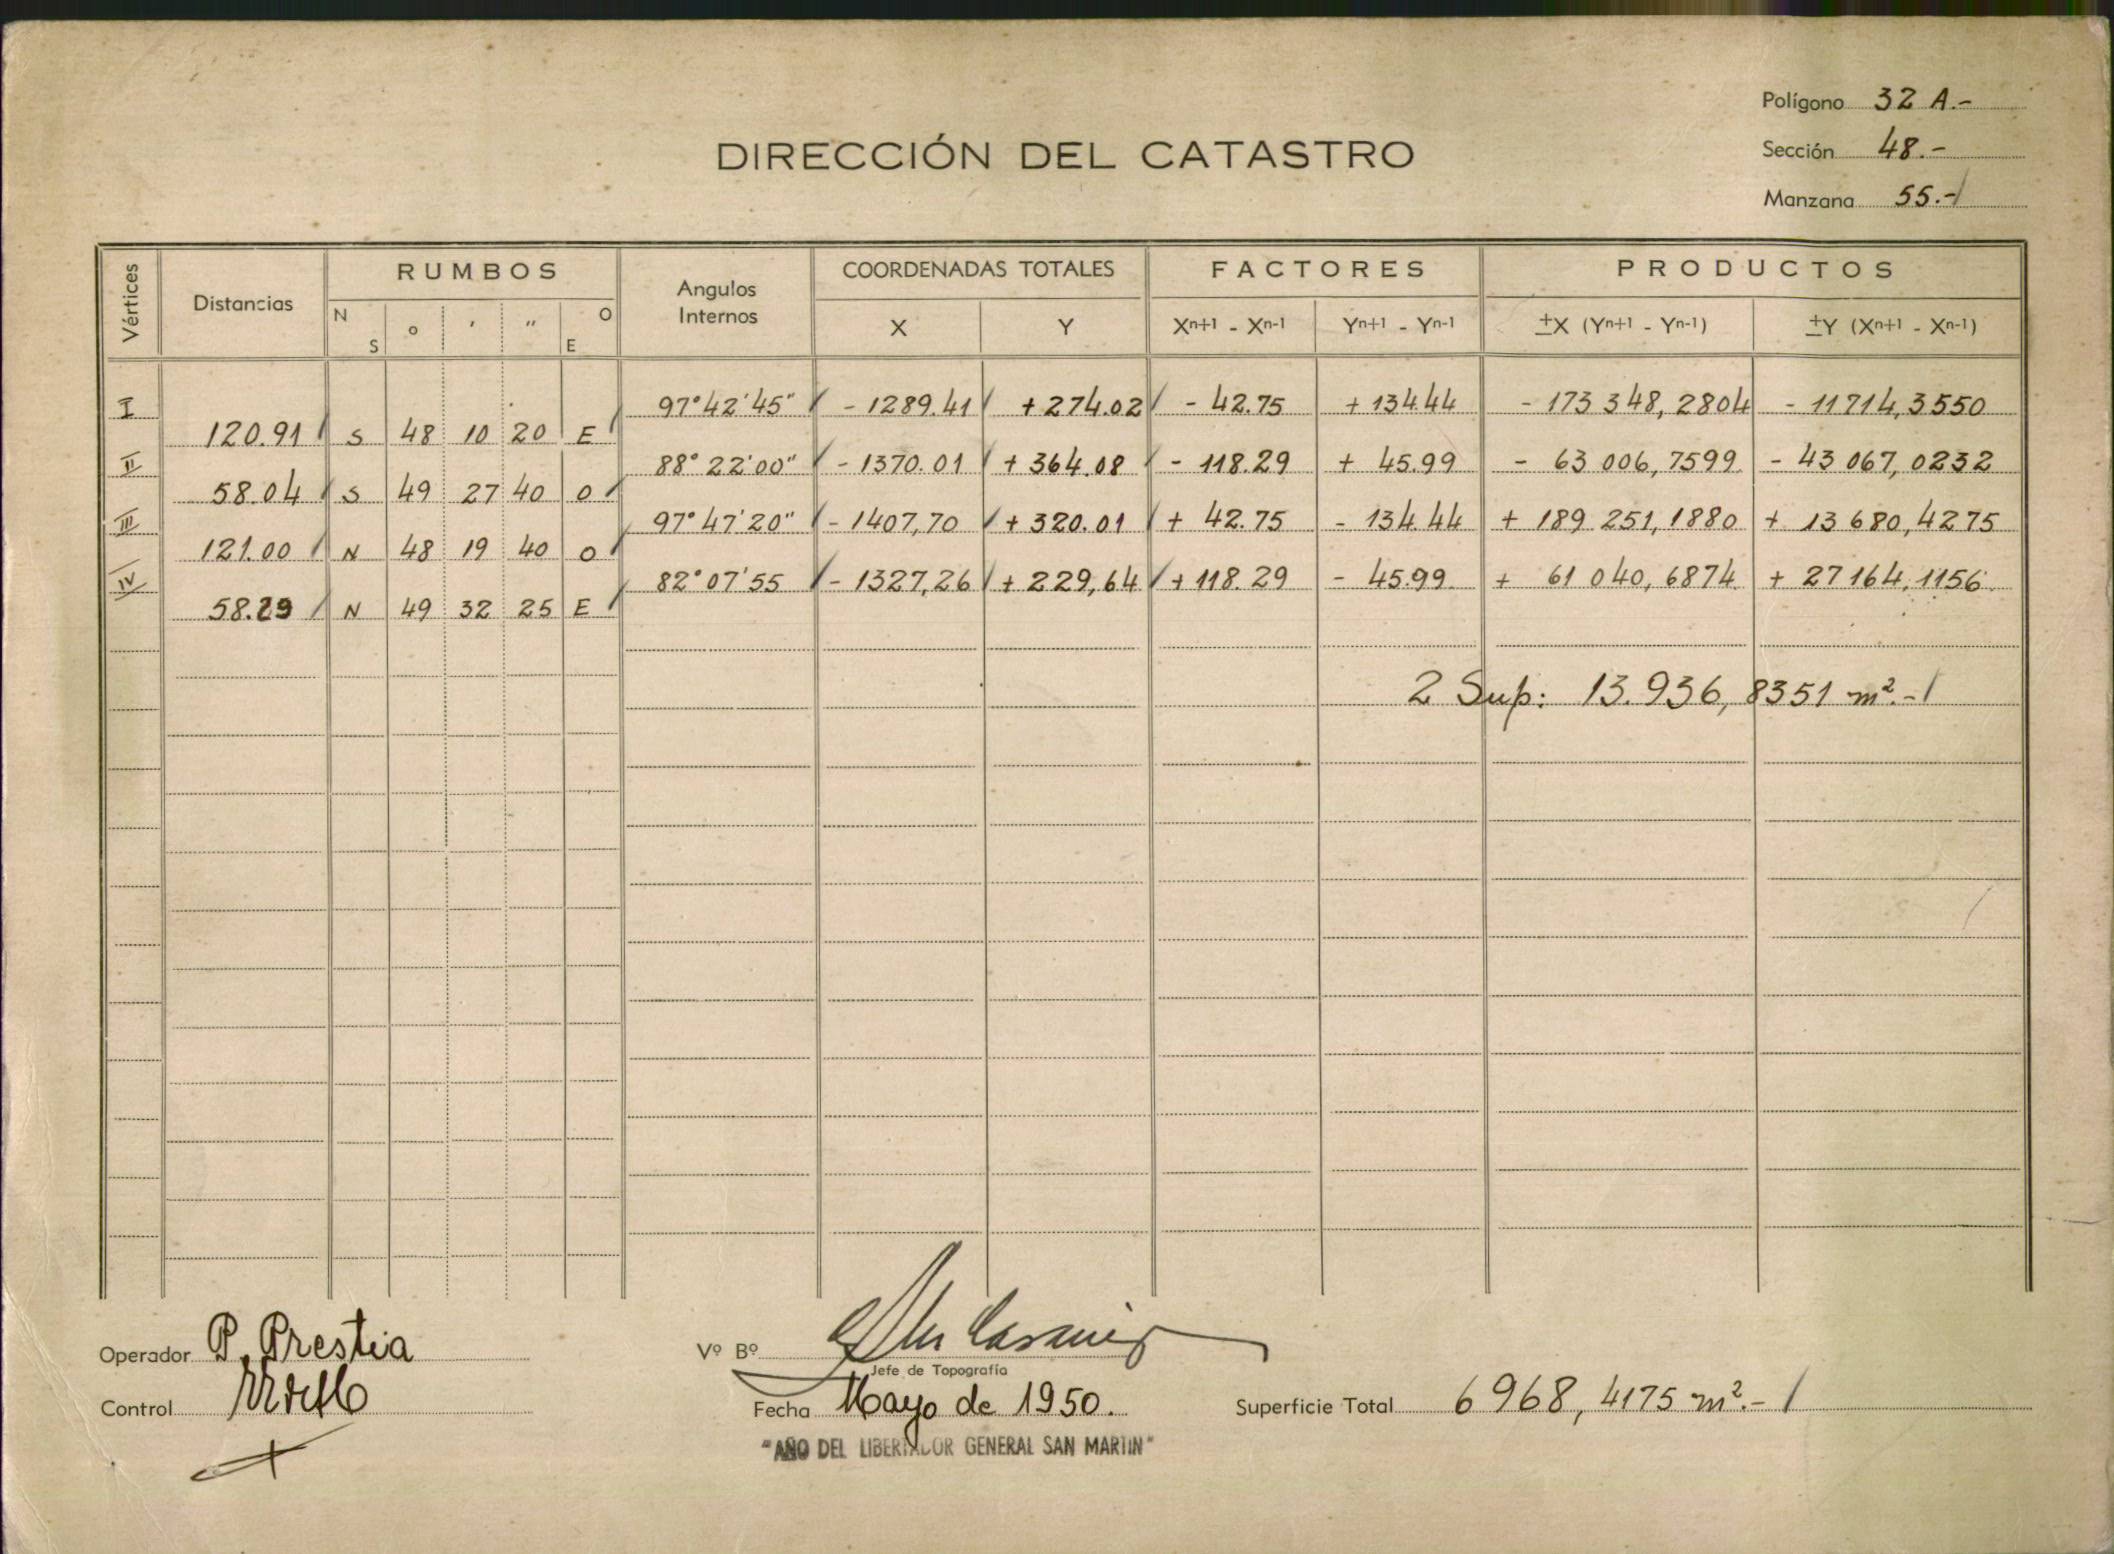 Polígono 32 A.-
DIRECCIÓN DEL CATASTRO
Sección 48.-
Manzana 55.-/
Vértices Distancias RUMBOS Angulos Internos COORDENADAS TOTALES FACTORES PRODUCTOS
N S ° ' " O E X Y Xn+1 - Xn-1 Yn+1 - Yn-1 ±X (Yn+1 - Yn-1) ±Y (Xn+1 - Xn-1)
I 97°42'45" - 1289.41 + 274.02 - 42.75 + 134.44 - 173 348,2804 - 11714,3550
120.91 S 48 10 20 E
II 88° 22'00" - 1370.01 + 364.08 - 118.29 + 45.99 - 63 006,7599 - 43 067,0232
58.04 S 49 27 40 O
III 97°47'20" - 1407,70 + 320.01 + 42.75 - 134.44 + 189 251,1880 + 13 680,4275
121.00 N 48 19 40 O
IV 82°07'55 - 1327,26 + 229,64 + 118.29 - 45.99 + 61 040,6874 + 27 164,1156
58.29 N 49 32 25 E
2 Sup: 13.936,8351 m².-/
Operador P. Prestia
Vº Bº
Jefe de Topografía
Control
Fecha Mayo de 1950.
Superficie Total 6968,4175 m².-/
"AÑO DEL LIBERTADOR GENERAL SAN MARTIN"